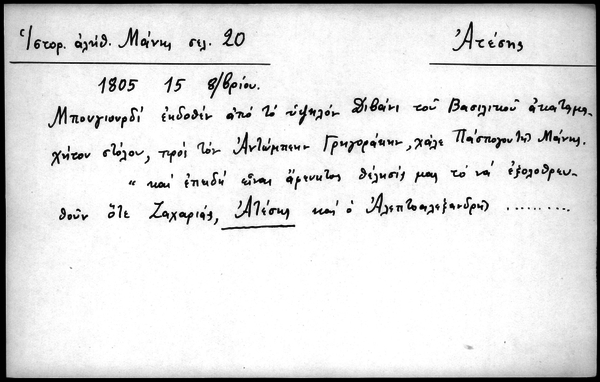 Ἱστορ. ἀλήθ. Μάνης σελ. 20
Ἀτέσης
1805 15 8/βρίου.
Μπουγιουρδί ἐκδοθέν ἀπό τό ὑψηλόν Διβάνι τοῦ Βασιλικοῦ ἀκαταμα-
χήτου στόλου, πρός τόν Ἀντώμπεην Γρηγοράκην, χάλε Πάσπογου τῆς Μάνης.
" καί ἐπειδή εἶναι ἄμενκτος θέλησίς μας τό νά ἐξολοθρευ-
θοῦν ὅτε Ζαχαριάς, Ἀτέσης καί ὁ Ἀλεπτοαλεξανδρῆ ..........